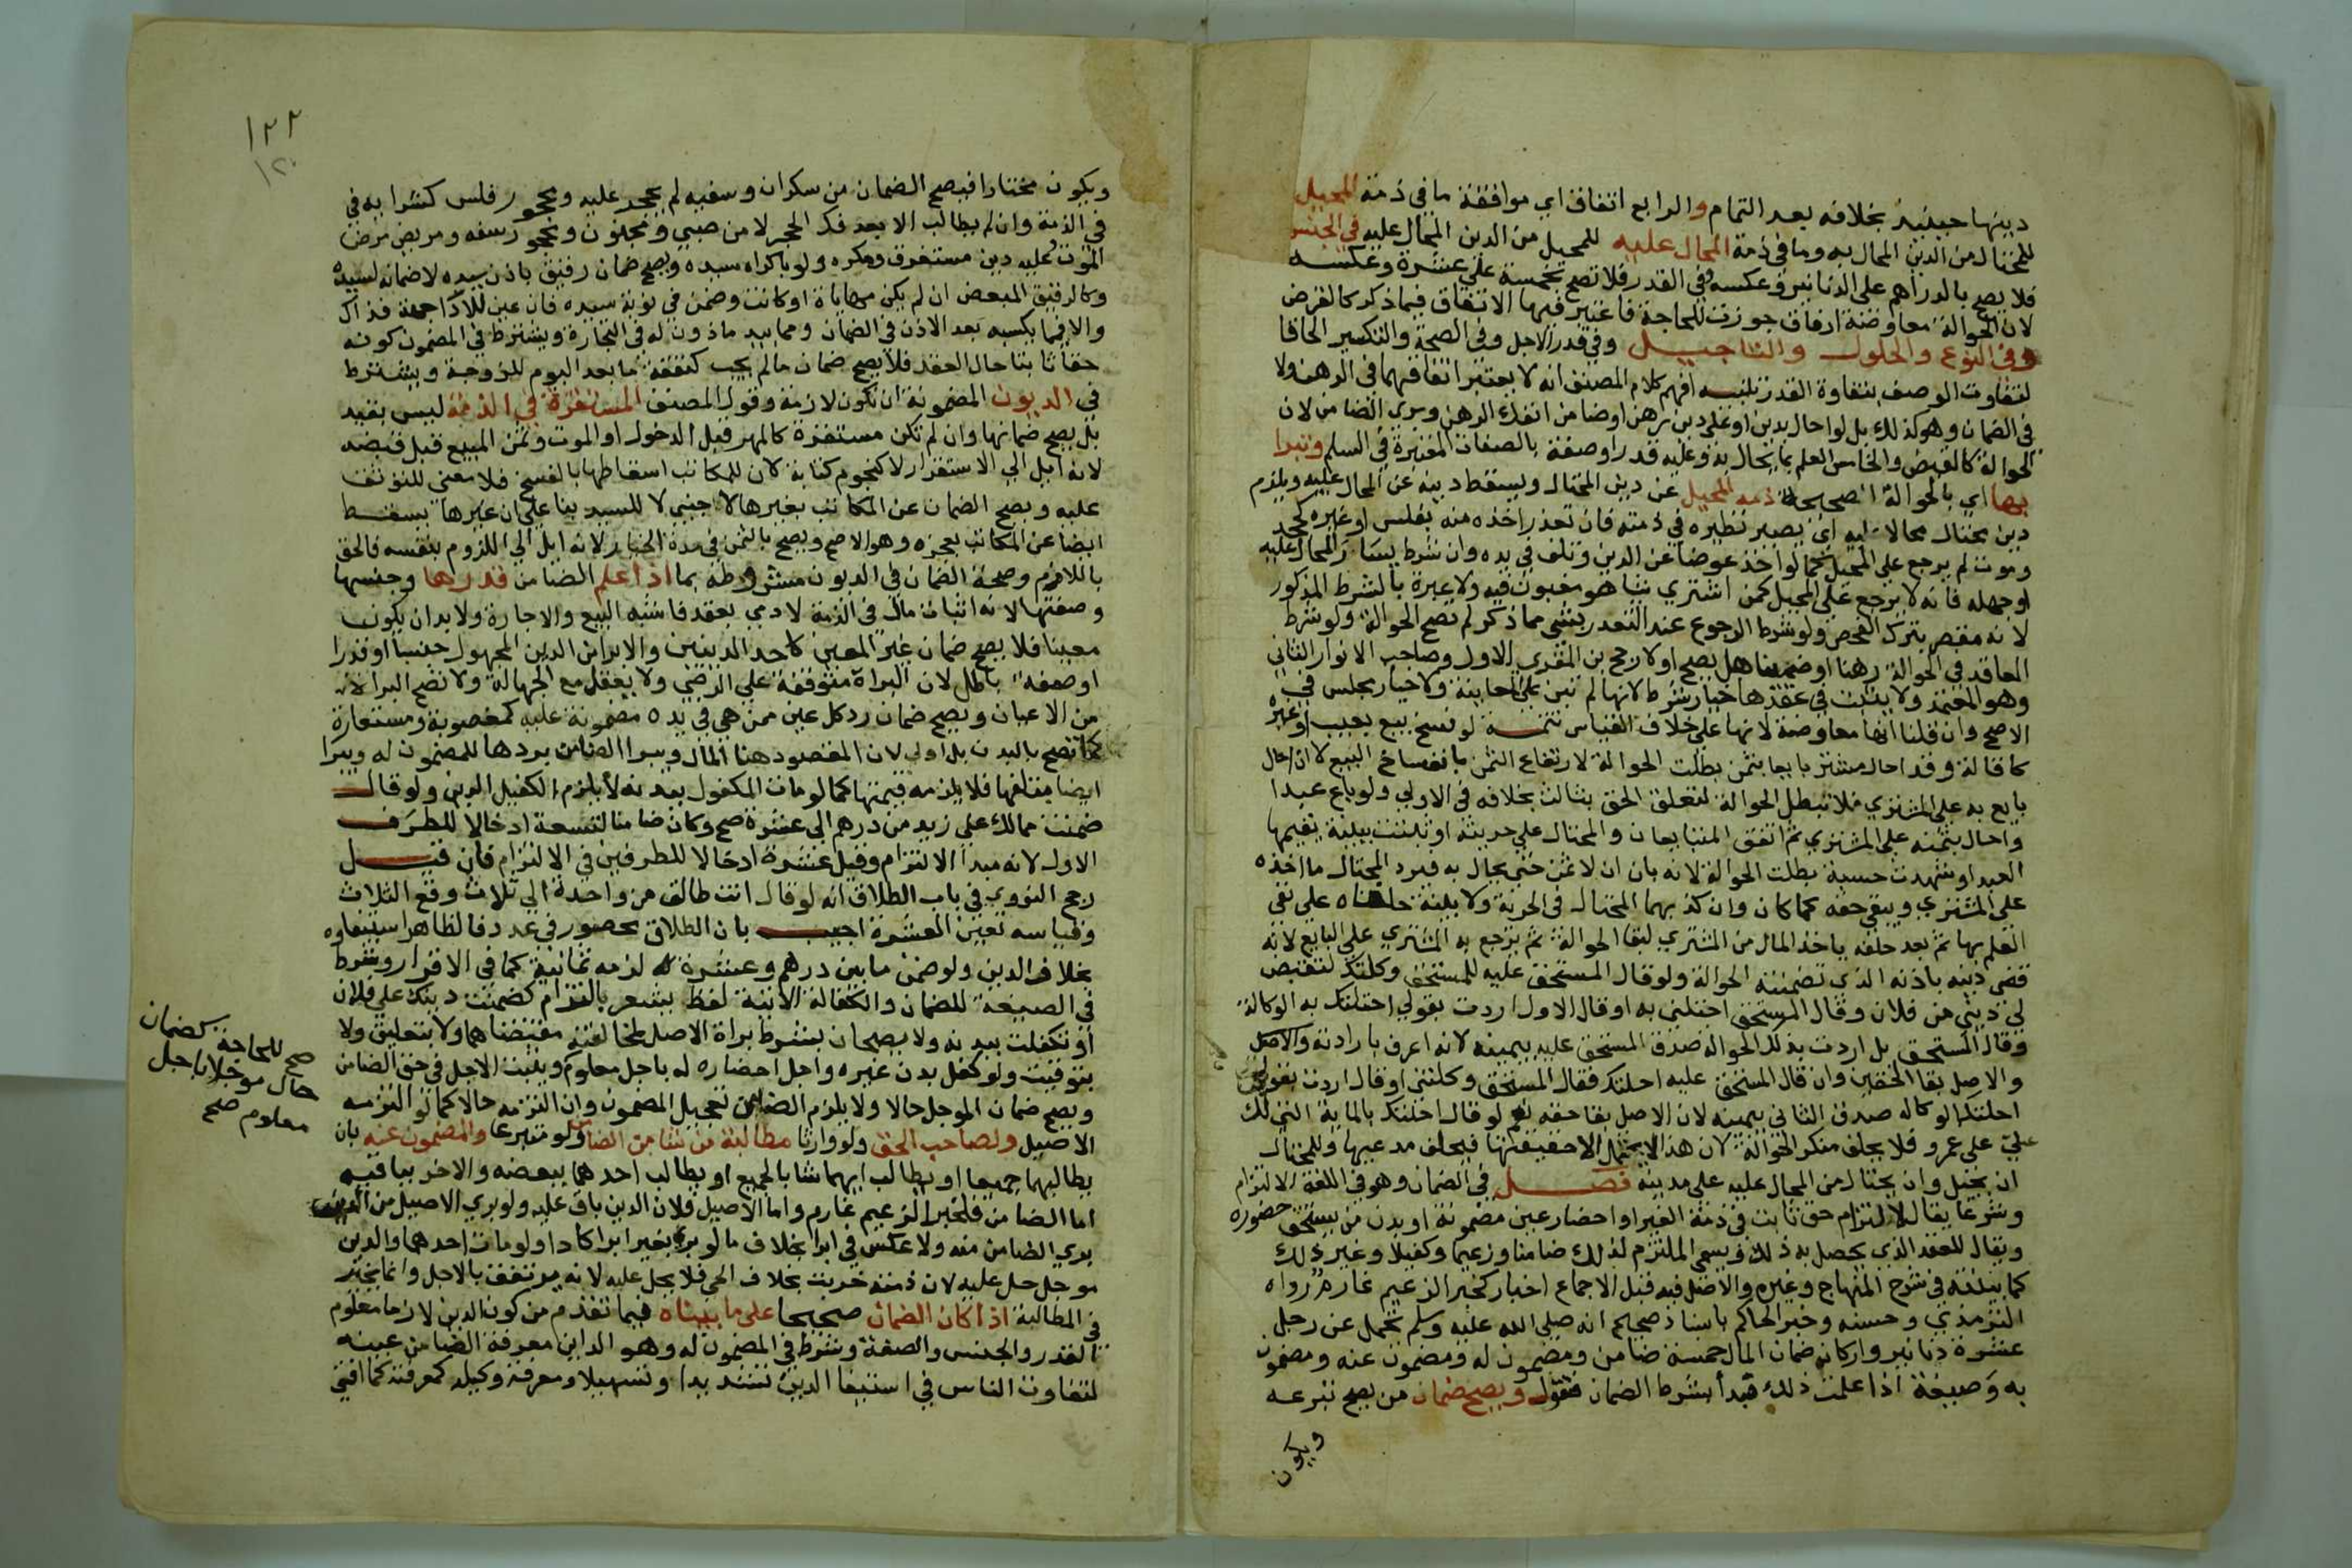 دينها حينئذ بخلافه بعد التمام والرابع اتفاق اي موافقة ما في ذمة المحيل
للمحتال من الدين المحال به وما في ذمة المحال عليه للمحيل من الدين المحال عليه في الجنس
فلا يصح بالدراهم على الدنانير وعكسه وفي القدر فلا تصح بخمسة على عشرة وعكسه
لان الحوالة معاوضة ارفاق جوزت للحاجة فاعتبر فيها الاتفاق فيما ذكر كالقرض
وفي النوع والحلول والتاجيل وفي قدر الاجل وفي الصحة والتكسير الحاقا
لتفاوت الوصف بتفاوة القدر تنبيه افهم كلام المصنف انه لا يعتبر اتفاقهما في الرهن ولا
في الضمان وهو كذلك بل لو احال بدين او على دين برهن او ضامن انفك الرهن وبري الضامن لان
الحوالة كالقبض والخامس العلم بما يحال به وعليه قدرا وصفة بالصفات المعتبرة في السلم وتبرا
بها اي بالحوالة الصحيحة ذمة المحيل عن دين المحتال ويسقط دينه عن المحال عليه ويلزم
دين محتال محالا عليه اي يصير نظيره في ذمته فان تعذر اخذه منه بفلس او غيره كجحد
وموت لم يرجع على المحيل كما لو اخذ عوضا عن الدين وتلف في يده وان شرط يسار المحال عليه
او جهله فانه لا يرجع على المحيل كمن اشتري شيا هو مغبون فيه ولا عبرة بالشرط المذكور
لانه مقصر بترك الفحص ولو شرط الرجوع عند التعذر بشي مما ذكر لم تصح الحوالة ولو شرط
العاقد في الحوالة رهنا او ضمينا هل يصح او لا رجح بن المقري الاول وصاحب الانوار الثاني
وهو المعتمد ولا يثبت في عقدها خيار شرط لانها لم تبن على المعاينة ولا خيار مجلس في
الاصح وان قلنا انها معاوضة لانها على خلاف القياس تتمة لو فسخ بيع بعيب او غيره
كاقالة وقد احال مشتر بايعا بثمن بطلت الحوالة لارتفاع الثمن بانفساخ البيع لا ان احال
بايع به على المشتري فلا تبطل الحوالة لتعلق الحق بثالث بخلافه في الاولي ولو باع عبدا
واحال بثمنه على المشتري ثم اتفق المتبايعان والمحتال على حريته او ثبتت ببينة يقيمها
العبد او شهدت حسبة بطلت الحوالة لانه بان ان لا ثمن حتى يحال به فيرد المحتال ما اخذه
على المشتري ويبقى حقه كما كان وان كذبهما المحتال في الحرية ولا بينة حلفاه على نفي
العلم بها ثم بعد حلفه ياخذ المال من المشتري لبقا الحوالة ثم يرجع به المشتري على البايع لانه
قضى دينه باذنه الذي تضمنته الحوالة ولو قال المستحق عليه للمستحق وكلتك لتقبض
لي ديني من فلان وقال المستحق احتلتني به او قال الاول اردت بقولي احتلتك به الوكالة
وقال المستحق بل اردت بذلك الحوالة صدق المستحق عليه بيمينه لانه اعرف بارادته والاصل
والاصل بقا الحقين وان قال المستحق عليه احلتك فقال المستحق وكلتني او قال اردت بقولي
احلتك الوكالة صدق الثاني بيمينه لان الاصل بقا حقه نعم لو قال احلتك بالماية التي لك
علي على عمرو فلا يحلف منكر الحوالة لان هذا لا يحتمل الا حقيقتها فيحلف مدعيها وللمحتال
ان يحيل وان يحتال من المحال عليه على مدينه فصل في الضمان وهو في اللغة الالتزام
وشرعا يقال لالتزام حق ثابت في ذمة الغير او احضار عين مضمونة او بدن من يستحق حضوره
ويقال للعقد الذي يحصل به ذلك ويسمى الملتزم لذلك ضامنا وزعيما وكفيلا وغير ذلك
كما بينته في شرح المنهاج وغيره والاصل فيه قبل الاجماع اخبار كخبر الزعيم غارم رواه
الترمذي وحسنه وخبر الحاكم باسناد صحيح انه صلى الله عليه وسلم تحمل عن رجل
عشرة دنانير واركان ضمان المال خمسة ضامن ومضمون له ومضمون عنه ومضمون
به وصيغة اذا علمت ذلك فبدأ بشرط الضمان فقول ويصح ضمان من يصح تبرعه
ويكون
١٢٢
١٢٠
ويكون مختارا فيصح الضمان من سكران وسفيه لم يحجر عليه ومحجور فلس كشرايه في
في الذمة وان لم يطالب الا بعد فك الحجر لا من صبي ومجنون ومحجور سفه ومريض مرض
الموت وعليه دين مستغرق ومكره ولو باكراه سيده ويصح ضمان رقيق باذن سيده لا ضمانه لسيده
وكالرقيق المبعض ان لم يكن مهاياة او كانت وضمن في نوبة سيده فان عين للادا جهة فذاك
والا فيما يكسبه بعد الاذن في الضمان ومما بيد ماذون له في التجارة ويشترط في المضمون كونه
حقا ثابتا حال العقد فلا يصح ضمان ما لم يجب كنفقة ما بعد اليوم للزوجة ويشترط
في الديون المضمونة ان تكون لازمة وقول المصنف المستقرة في الذمة ليس بقيد
بل يصح ضمانها وان لم تكن مستقرة كالمهر قبل الدخول او الموت وثمن المبيع قبل قبضه
لانه ايل الي الاستقرار لا كنجوم كتابة لان للمكاتب اسقاطها بالفسخ فلا معنى للتوثق
عليه ويصح الضمان عن المكاتب بغيرها لاجنبي لا للسيد بنا على ان غيرها يسقط
ايضا عن المكاتب بعجزه وهو الاصح ويصح بالثمن في مدة الخيار لانه ايل الي اللزوم بنفسه فالحق
باللازم وصحة الضمان في الديون مشروطة بما اذا علم الضامن قدرها وجنسها
وصفتها لانه اثبات مال في الذمة لادمي بعقد فاشبه البيع والاجارة ولا بد ان يكون
معينا فلا يصح ضمان غير المعين كاحد الدينين والابرا من الدين المجهول جنسا او قدرا
او صفة باطل لان البراة متوقفة على الرضي ولا يعقل مع الجهالة ولا تصح البراة
من الاعيان ويصح ضمان رد كل عين ممن هي في يده مضمونة عليه كمغصوبة ومستعارة
كما تصح بالبدن بل اولى لان المقصود هنا المال ويبرا الضامن بردها للمضمون له ويبرا
ايضا بتلفها فلا يلزمه قيمتها كما لو مات المكفول ببدنه لا يلزم الكفيل الدين ولو قال
ضمنت مالك على زيد من درهم الي عشرة صح وكان ضامنا لتسعة ادخالا للطرف
الاول لانه مبدأ الالتزام وقيل عشرة ادخالا للطرفين في الالتزام فان قيل
رجح النووي في باب الطلاق انه لو قال انت طالق من واحدة الي ثلاث وقع الثلاث
وقياسه تعين العشرة اجيب بان الطلاق محصور في عدد فالظاهر استيفاوه
بخلاف الدين ولو ضمن ما بين درهم وعشرة لزمه ثمانية كما في الاقرار وشرط
في الصيغة للضمان والكفالة الاتية لفظ يشعر بالتزام كضمنت دينك على فلان
او تكفلت ببدنه ولا يصحان بشرط براة الاصل لمخالفته مقتضاهما ولا بتعليق ولا
بتوقيت ولو كفل بدن غيره واجل احضاره له باجل معلوم ويثبت الاجل في حق الضامن
ويصح ضمان الموجل حالا ولا يلزم الضامن تعجيل المضمون وان التزمه حالا كما لو التزمه
الاصيل ولصاحب الحق ولو وارثا مطالبة من شا من الضامن ولو متبرعا والمضمون عنه بان
يطالبهما جميعا او يطالب ايهما شا بالجميع او يطالب احدهما ببعضه والاخر بباقيه
اما الضامن فلخبر الزعيم غارم واما الاصيل فلان الدين باق عليه ولو بري الاصيل من الدين
بري الضامن منه ولا عكس في ابرا بخلاف ما لو بري بغير ابرا كادا ولو مات احدهما والدين
موجل حل عليه لان ذمته خربت بخلاف الحي فلا يحل عليه لانه يرتفق بالاجل وانما يخير
في المطالبة اذا كان الضمان صحيحا على ما بيناه فيما تقدم من كون الدين لازما معلوم
القدر والجنس والصفة وشرط في المضمون له وهو الداين معرفة الضامن عينه
لتفاوت الناس في استيفا الدين تشديدا وتسهيلا ومعرفة وكيله كمعرفته كما افتى
صح للحاجة كضمان
حال موجلا باجل
معلوم صح